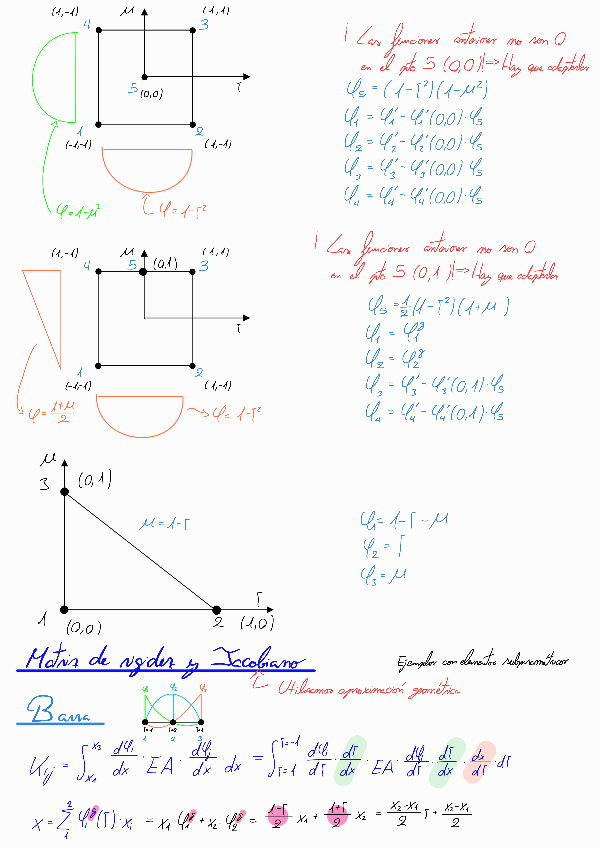 (1,-1) μ (1,1)
4 3
5 (0,0) Γ
1 2
(-1,-1) (1,-1)
φ=1-μ² φ=1-Γ²
¡ Las funciones anteriores no son 0
en el pto 5 (0,0)!! => Hay que adaptarlas
φ₅ = (1-Γ²)(1-μ²)
φ₁ = φ₁' - φ₁'(0,0)·φ₅
φ₂ = φ₂' - φ₂'(0,0)·φ₅
φ₃ = φ₃' - φ₃'(0,0)·φ₅
φ₄ = φ₄' - φ₄'(0,0)·φ₅
(1,-1) μ (1,1)
4 5 (0,1) 3
Γ
1 2
(-1,-1) (1,-1)
φ = (1+μ)/2 φ=1-Γ²
¡ Las funciones anteriores no son 0
en el pto 5 (0,1)!! => Hay que adaptarlas
φ₅ = 1/2 (1-Γ²)(1+μ)
φ₁ = φ₁ᵍ
φ₂ = φ₂ᵍ
φ₃ = φ₃' - φ₃'(0,1)·φ₅
φ₄ = φ₄' - φ₄'(0,1)·φ₅
μ
3 (0,1)
μ = 1-Γ
Γ
1 (0,0) 2 (1,0)
φ₁ = 1-Γ-μ
φ₂ = Γ
φ₃ = μ
Matriz de rigidez y Jacobiano
Ejemplos con elementos subparamétricos
Utilizamos aproximación geométrica
Barra
φ₁ φ₂ φ₃
1 2 3
Kᵢⱼ = ∫ₓ₁^x₃ dφᵢ/dx · EA · dφⱼ/dx dx = ∫_Γ=1^Γ=-1 dφᵢ/dΓ · dΓ/dx · EA · dφⱼ/dΓ · dΓ/dx · dx/dΓ · dΓ
x = Σ₁² φᵢᵍ(Γ)·xᵢ = x₁ φ₁ᵍ + x₂ φ₂ᵍ = (1-Γ)/2 x₁ + (1+Γ)/2 x₂ = (x₂-x₁)/2 Γ + (x₂-x₁)/2